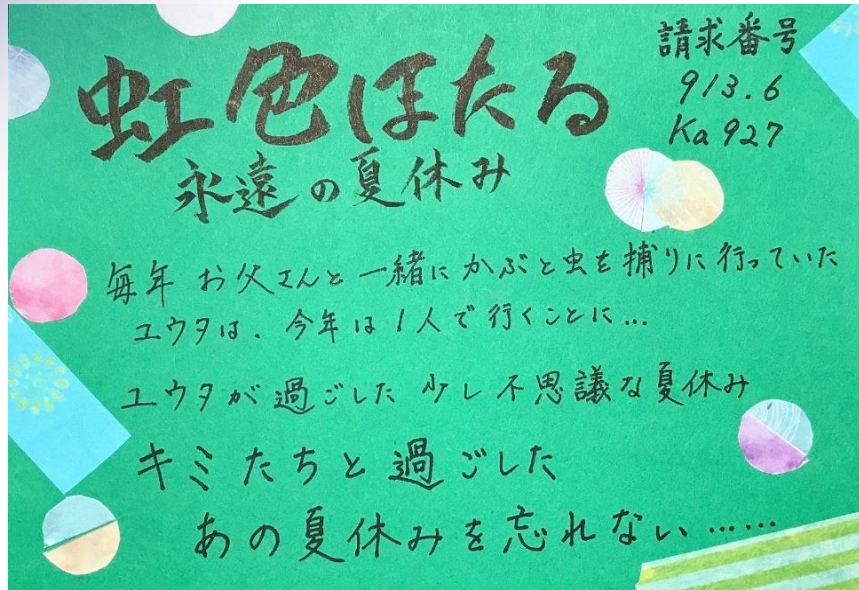 虹色ほたる
永遠の夏休み
請求番号
913.6
Ka927
毎年 お父さんと一緒にかぶと虫を捕りに行っていた
ユウタは、今年は1人で行くことに…
ユウタが過ごした 少し不思議な夏休み
キミたちと過ごした
あの夏休みを忘れない……